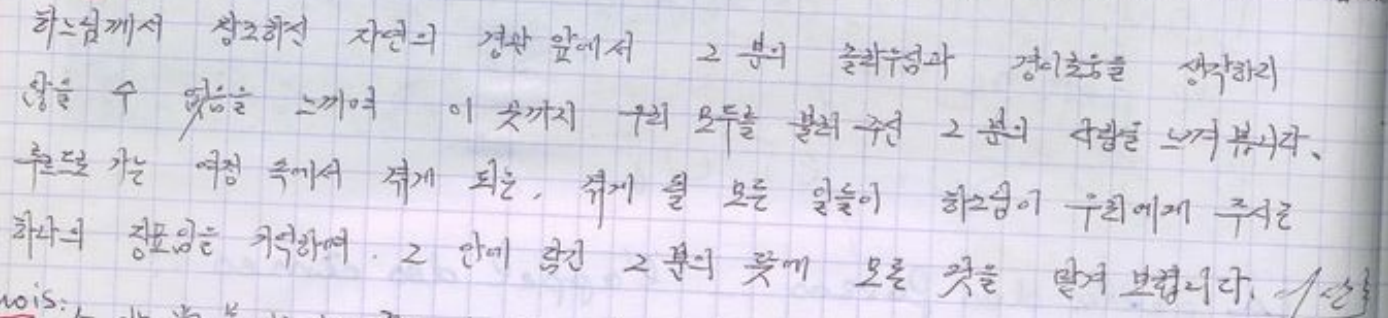 하느님께서 창조하신 자연의 경관 앞에서 그 분의 놀라우심과 경이로움을 생각하지
않을 수 없음을 느끼며 이 곳까지 우리 모두를 불러 주신 그 분의 사랑을 느껴 봅니다.
루르드로 가는 여정 속에서 겪게 되는, 겪게 될 모든 일들이 하느님이 우리에게 주시는
하나의 징표임을 기억하며, 그 안에 담긴 그 분의 뜻에 모든 것을 맡겨 보렵니다.
nois: